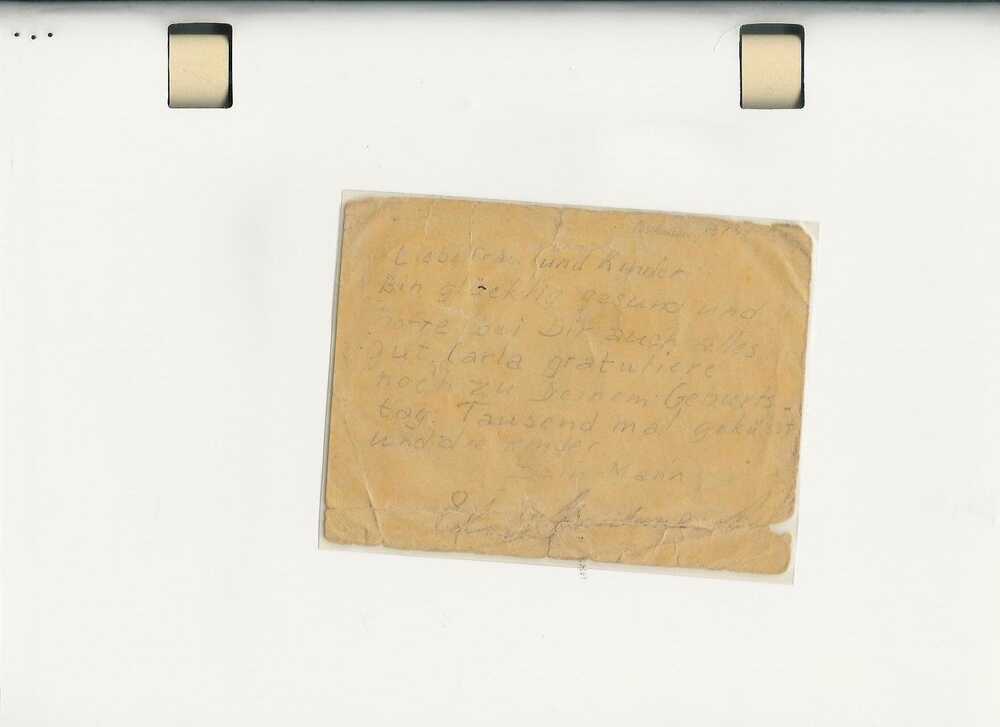 Liebe Frau und Kinder
Bin glücklig gesund und
hoffe bei Dir auch alles
gut. Carla gratuliere
noch zu Deinem Geburts-
tag. Tausend mal geküsst
und die Kinder
Dein Mann